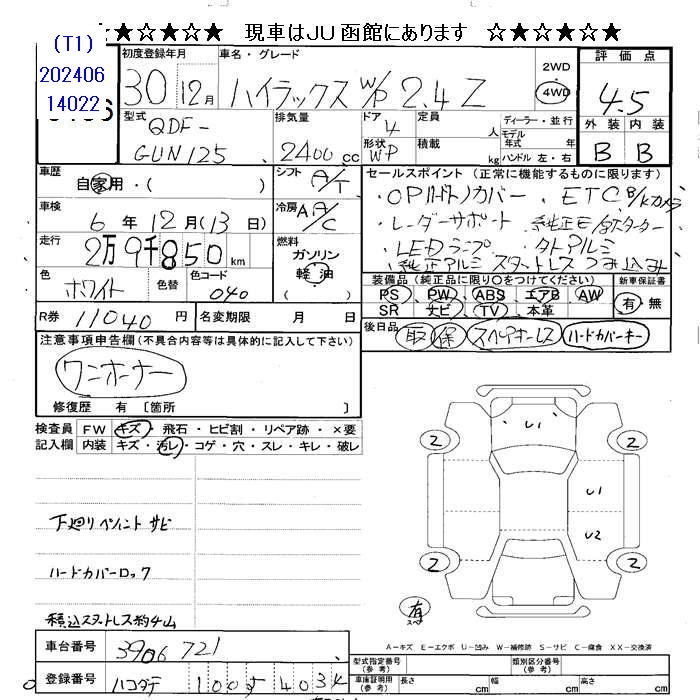 ★☆★☆★ 現車はJU函館にあります ☆★☆★☆★
(T1)
202406
14022
初度登録年月 車名・グレード
30 12月 ハイラックス W/P 2.4 Z
2WD
4WD
評価点
4.5
外装 内装
B B
型式 排気量 ドア 定員 ディーラー・並行
QDF-
GUN125 2400 cc
4 人
形状 積載 モデル年式 年式
WP kg ハンドル 左・右
車歴 自家用・( )
シフト A/T
車検 6年12月(13日)
冷房 A/C
走行 2万9千850km
燃料 ガソリン 軽油
色 ホワイト 色替 色コード 040
セールスポイント (正常に機能するものに限ります)
・ETC B/Kカメラ
・レーダーサポート
・LEDランプ
・純正アルミスタットレスつみ込み
装備品(純正品に限り○をつけてください) 新車保証書
PS PW ABS エアB AW 有・無
SR ナビ TV 本革
R券 11040円 名変期限 月 日
後日品 取 保 スペアキーレス ハードカバーキー
注意事項申告欄(不具合内容等は具体的に記入して下さい)
ワンオーナー
修復歴 有 〔箇所 〕
検査員 FW キズ・飛石・ヒビ割・リペア跡・×要
記入欄 内装 キズ・汚レ・コゲ・穴・スレ・キレ・破レ
下廻りペイント サビ
ハードカバーロック
積込スタットレス約4山
U1
2 2
U1
U2
2 2
有
スペ
A－キズ E－エクボ U－凹み W－補修跡 S－サビ C－腐食 XX－交換済
車台番号 3906721
型式指定番号(参考) 類別区分番号(参考)
登録番号 ハコダテ 100す403
車庫証明用(参考) 長さ cm 幅 cm 高さ cm